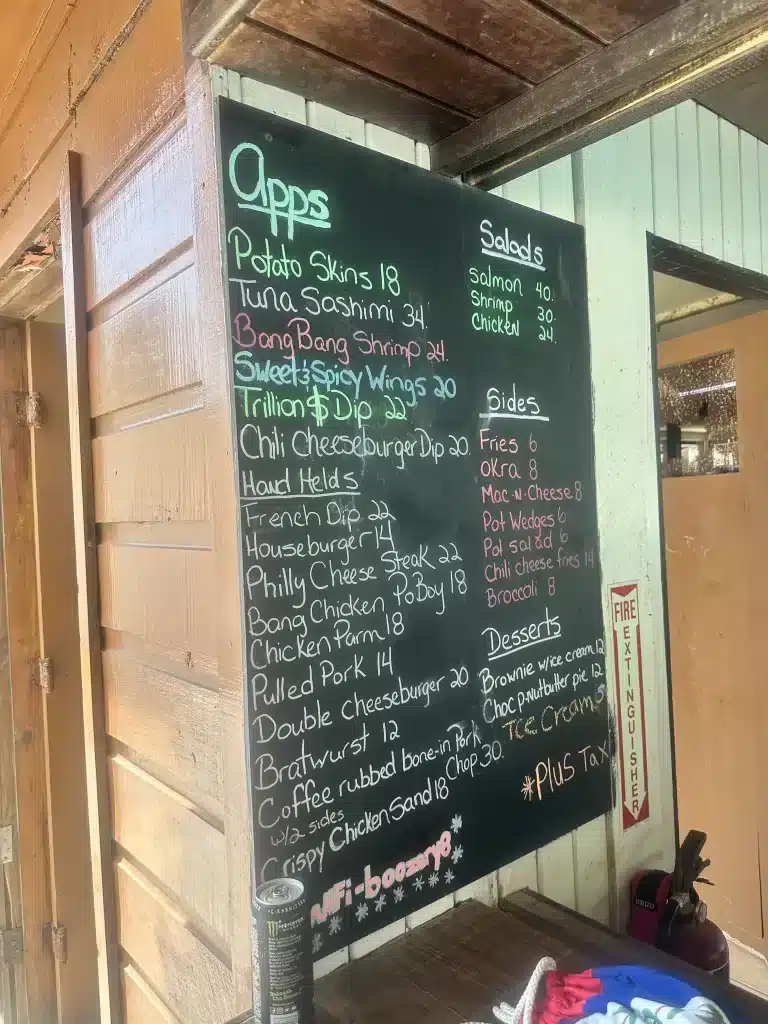 Apps
Potato Skins 18
Tuna Sashimi 34.
BangBang Shrimp 24.
Sweet & Spicy Wings 20
Trillion$ Dip 22
Chili CheeseburgerDip 20.
Hand Helds
French Dip 22
Houseburger 14
Philly Cheese Steak 22
Bang Chicken PoBoy 18
Chicken Parm 18
Pulled Pork 14
Double Cheeseburger 20
Bratwurst 12
Coffee rubbed bone-in Pork
Chop 30.
w/2 sides
Crispy Chicken Sand 18
WiFi-boozary8
Salads
Salmon 40.
Shrimp 30.
Chicken 24.
Sides
Fries 6
Okra 8
Mac-n-Cheese 8
Pot Wedges 6
Pot salad 6
Chili cheese fries 14
Broccoli 8
Desserts
Brownie w/ice cream 12
Choc p-nutbutter pie 12
Ice Cream 5
*Plus Tax
FIRE
EXTINGUISHER
MONSTER